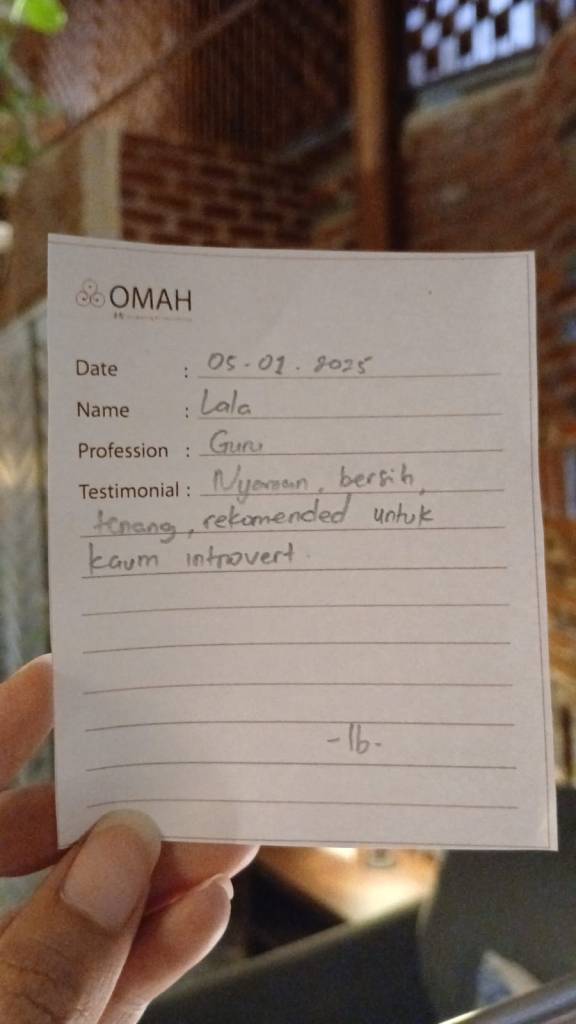 OMAH
Date : 05-01-2025
Name : Lala
Profession : Guru
Testimonial : Nyaman, bersih,
tenang, rekomended untuk
kaum introvert.
-lb-